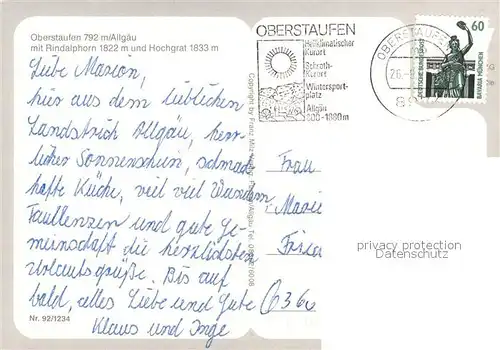 Oberstaufen 792 m/Allgäu
mit Rindalphorn 1822 m und Hochgrat 1833 m
Liebe Marion,
hier aus dem lieblichen
Landstrich Allgäu, herr-
licher Sonnenschein, schmack
hafte Küche, viel viel Wandern
Faullenzen und gute Ge-
meinschaft die herzlichsten
Urlaubsgrüße. Bis auf
bald, alles Liebe und Gute
Klaus und Inge
Nr. 92/1234
Copyright by Franz
OBERSTAUFEN
Heilklimatischer
Kurort
Schroth-
Kurort
Wintersport-
platz
Allgäu
800-1800m
OBERSTAUFEN
26.
60
DEUTSCHE BUNDESPOST
BAVARIA MÜNCHEN
Frau
Marie
636
privacy protection
Datenschutz